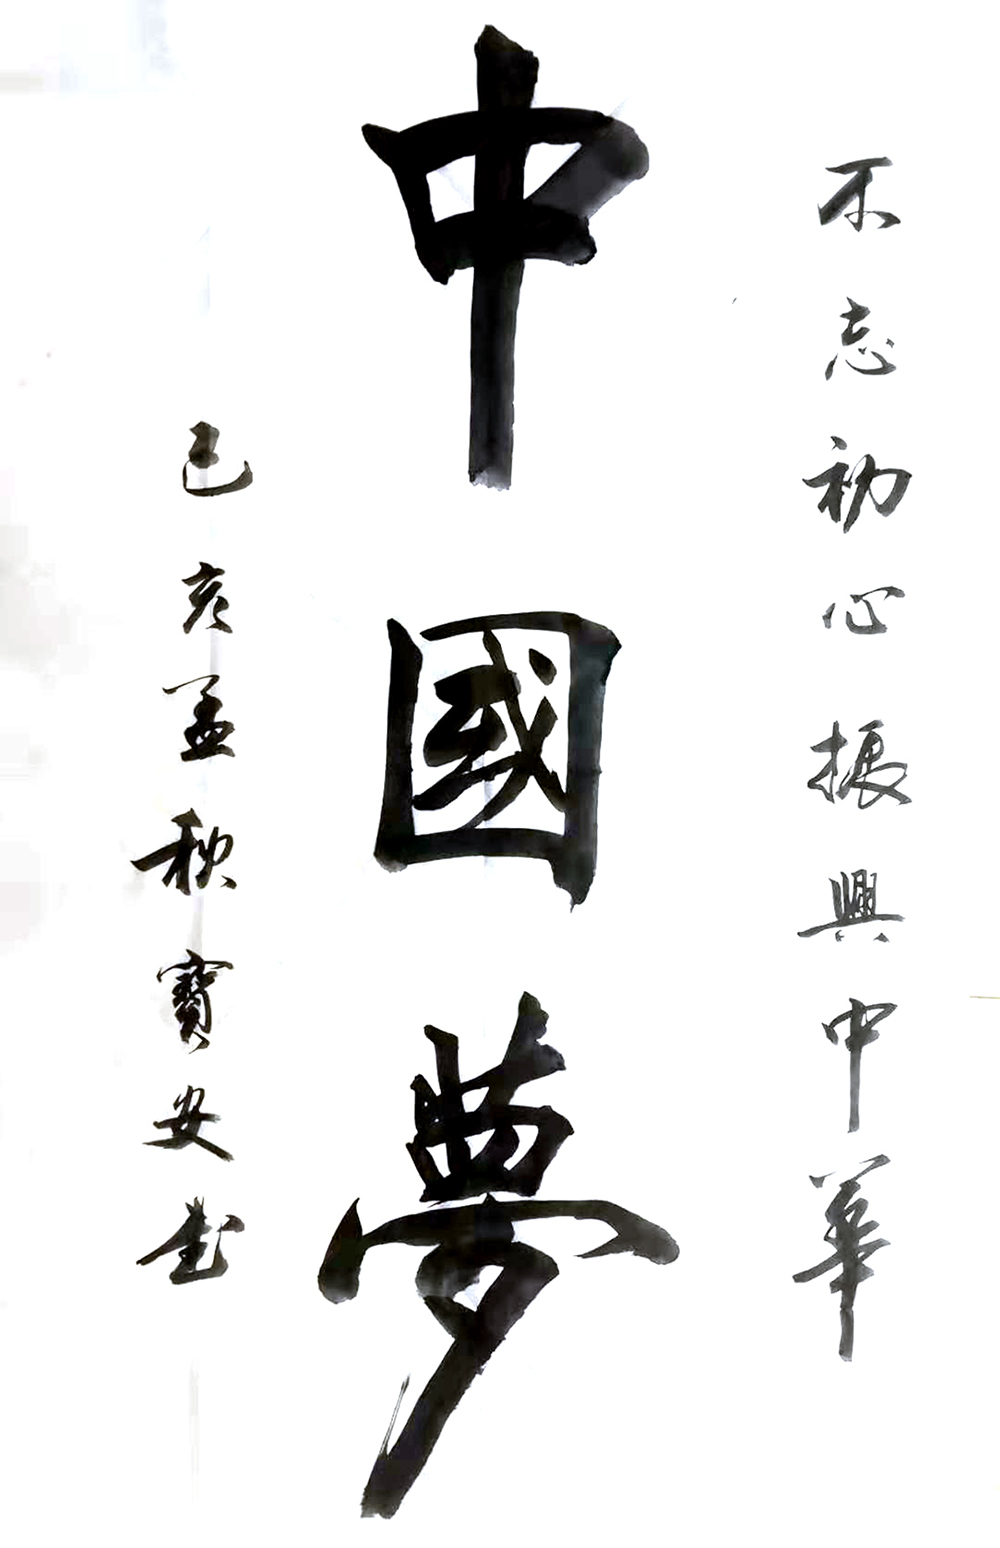 不忘初心振興中華
中國夢
己亥孟秋寶安